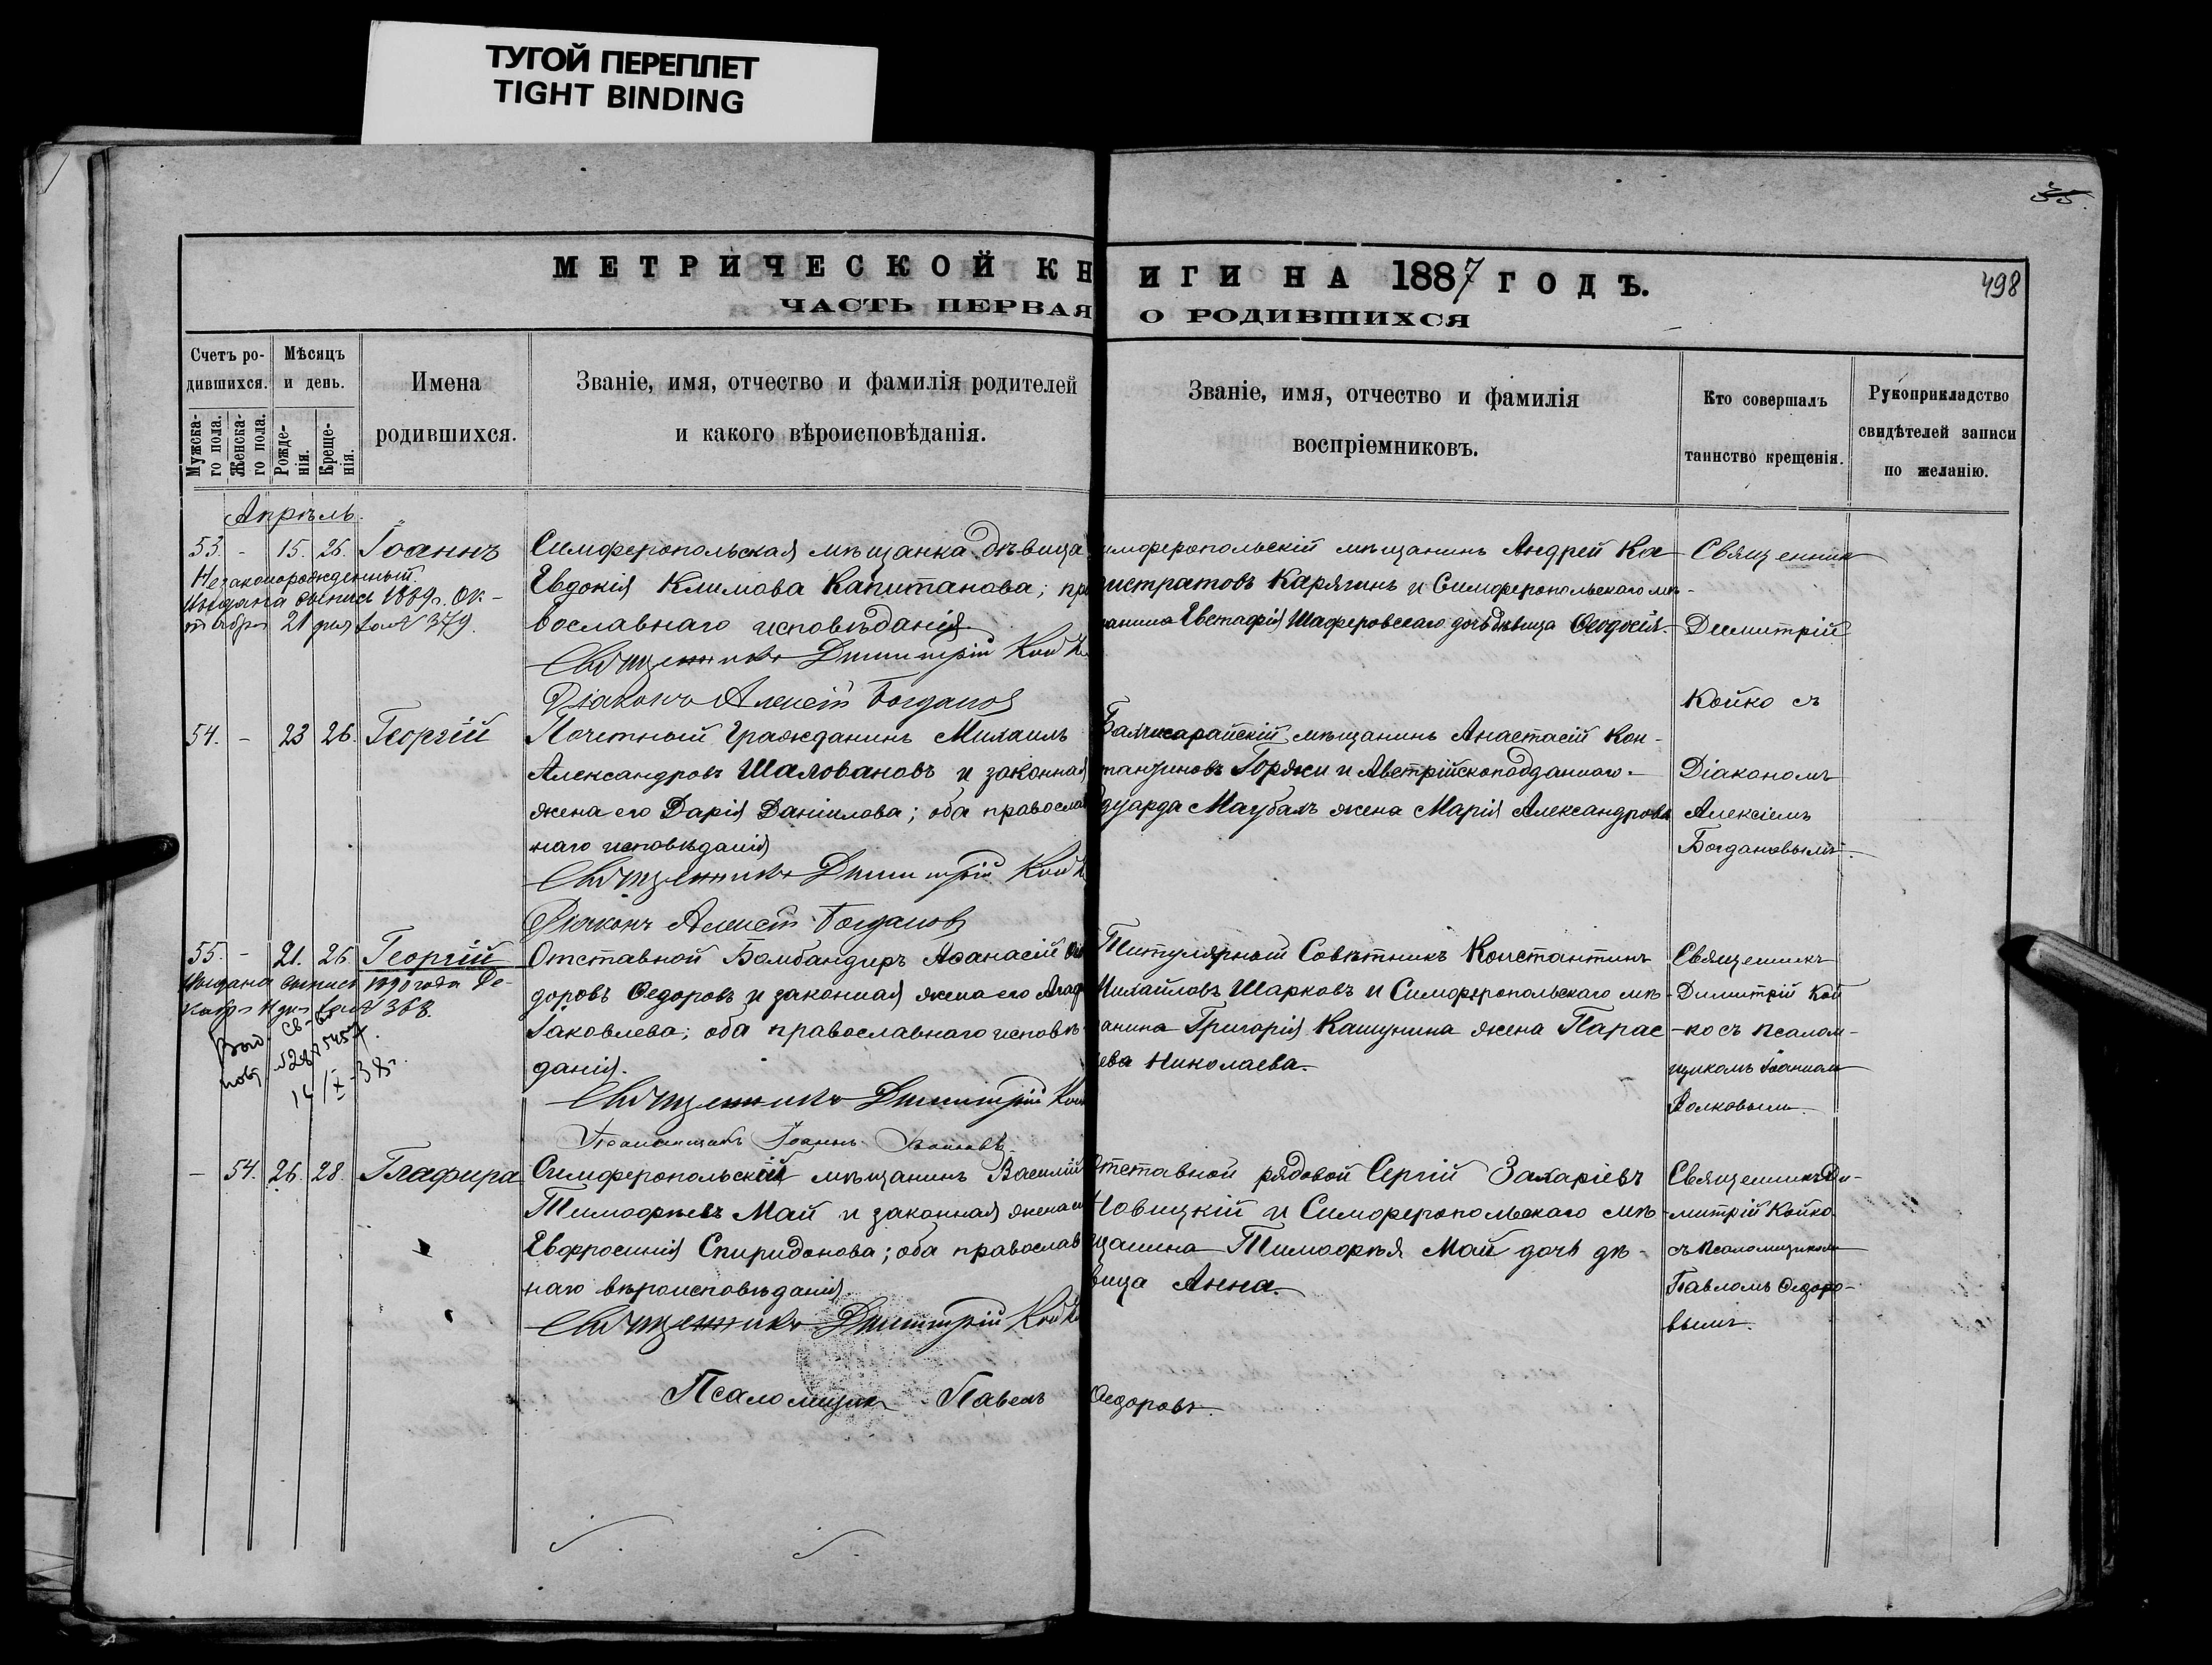 ТУГОЙ ПЕРЕПЛЕТ
TIGHT BINDING
35.
МЕТРИЧЕСКОЙ КНИГИ НА 1887 ГОДЪ.
498
ЧАСТЬ ПЕРВАЯ О РОДИВШИХСЯ
Счетъ ро-
дившихся.
Мужска-
го пола.
Женска-
го пола.
Мѣсяцъ
и день.
Рожде-
нія.
Креще-
нія.
Имена
родившихся.
Званіе, имя, отчество и фамилія родителей
и какого вѣроисповѣданія.
Званіе, имя, отчество и фамилія
воспріемниковъ.
Кто совершалъ
таинство крещенія.
Рукоприкладство
свидѣтелей записи
по желанію.
Апрѣль.
53. - 15. 26. Іоаннъ
Незаконорожденный.
Выдана выпись 1889 г. Ок-
тября 21 дня за № 379.
Симферопольская мѣщанка дѣвица
Евдокія Климова Капитанова; пра
вославнаго исповѣданія
Священникъ Димитрій Койк
Діаконъ Алексѣй Богданов
имферопольскій мѣщанинъ Андрей Ка
листратовъ Карягинъ и Симферопольскаго мѣ-
щанина Евстафія Шаферовскаго дочь дѣвица Ѳеодосія.
Священник
Димитрій
Койко съ
Діакономъ
Алексіемъ
Богдановымъ.
54. - 23 26. Георгій
Почетный Гражданинъ Михаилъ
Александровъ Шаловановъ и законная
жена его Дарія Даніилова; оба правосла
наго исповѣданія
Священникъ Димитрій Койк
Діаконъ Алексѣй Богданов
Бахчисарайскій мѣщанинъ Анастасій Кон-
тантиновъ Горяжи и Австрійскоподданнаго
дуарда Маубахъ жена Марія Александрова
55. - 21. 26 Георгій
Выдана выпись 1890 года Де-
кабря 11 дня за № 368.
Выд. св-во
повт. №28
14/IX-38г.
Отставной Бомбандиръ Аѳанасій Ѳе
доровъ Ѳедоровъ и законная жена его Агаф
Іаковлева; оба православнаго исповѣ-
данія.
Священникъ Димитрій Кой
Псаломщикъ Іоаннъ Волковъ
Титулярный Совѣтникъ Константинъ
Михайловъ Шарковъ и Симферопольскаго мѣ-
анина Григорія Кашунина жена Парас
ева Николаева.
Священникъ
Димитрій Кой
-ко съ псалом-
щикомъ Іоанном
Волковымъ.
- 54. 26. 28. Глафира
Симферопольскій мѣщанинъ Василій
Тимоѳѣевъ Май и законная жена его
Евфросинія Спиридонова; оба православ
наго вѣроисповѣданія
Священникъ Димитрій Койк
Псаломщикъ Павелъ Ѳедоровъ.
тставной рядовой Сергій Захаріевъ
Новицкій и Симферопольскаго мѣ-
щанина Тимоѳѣя Май дочь дѣ-
вица Анна.
Священникъ Ди-
митрій Койко
съ псаломщиком
Павломъ Ѳедоро-
вымъ.